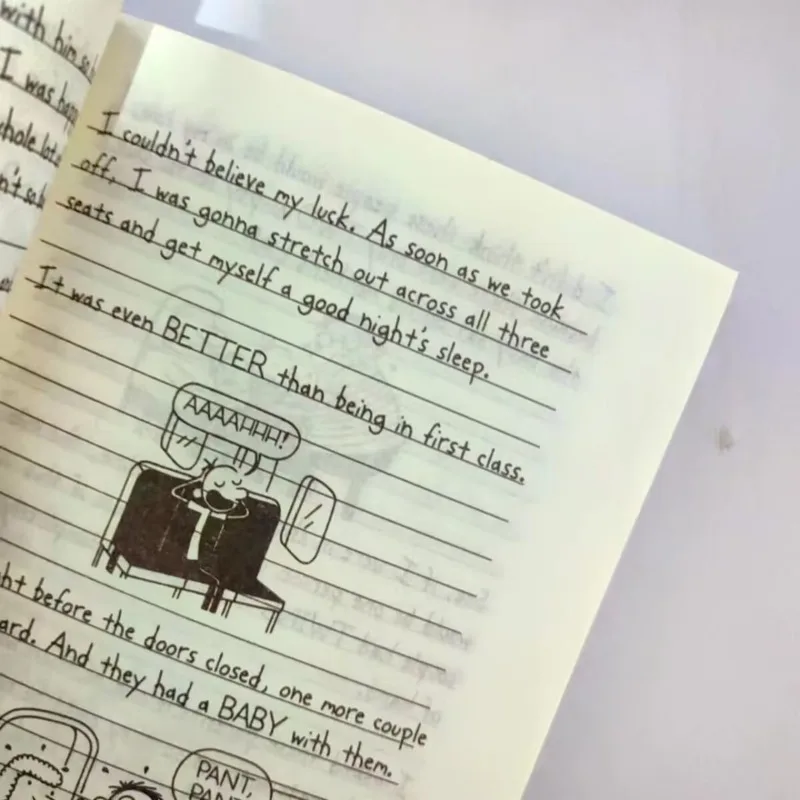 with him
I was
I couldn't believe my luck. As soon as we took
off, I was gonna stretch out across all three
seats and get myself a good night's sleep.
It was even BETTER than being in first class.
AAAAHHH!
before the doors closed, one more couple
And they had a BABY with them.
PANT,